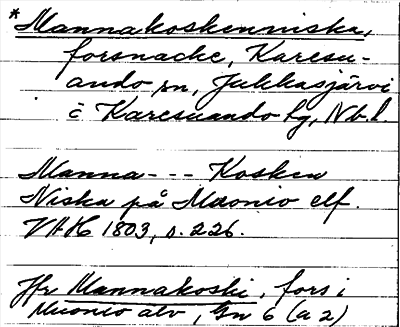 *Mannakoskenniska,
forsnacke, Karesu-
ando sn, Jukkasjärvi
o Karesuando lg, Nb. l.
Manna--- Kosken
Niska på Muonio elf.
VAH 1803, s. 226.
Jfr Mannakoski, fors i
Muonio älv, Gn 6 (a 2)